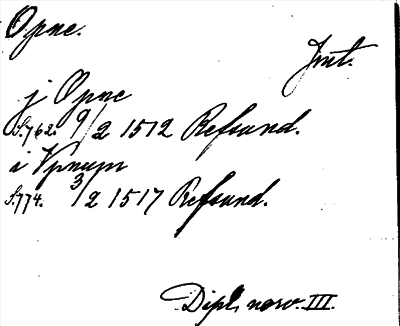 Opne.
Jmt.
j Opne
S.762. 9/2 1512 Refsund.
i Vpnum
S.774. 3/2 1517 Refsund.
Dipl. norv. III.